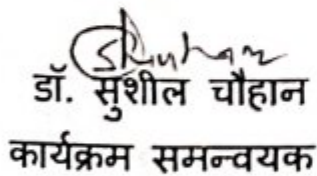 डॉ. सुशील चौहान
कार्यक्रम समन्वयक